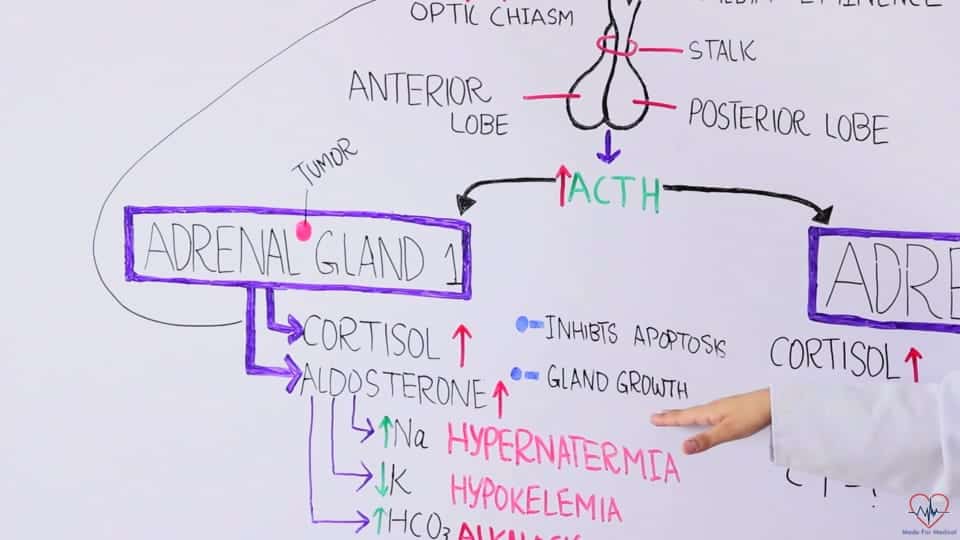 OPTIC CHIASM
EMINENCE
STALK
ANTERIOR
LOBE
POSTERIOR LOBE
TUMOR
↑ACTH
ADRENAL GLAND 1
ADRE
CORTISOL ↑
INHIBTS APOPTOSIS
CORTISOL ↑
ALDOSTERONE ↑
GLAND GROWTH
↑Na HYPERNATERMIA
↓K HYPOKELEMIA
↑HCO₃
Made For Medical